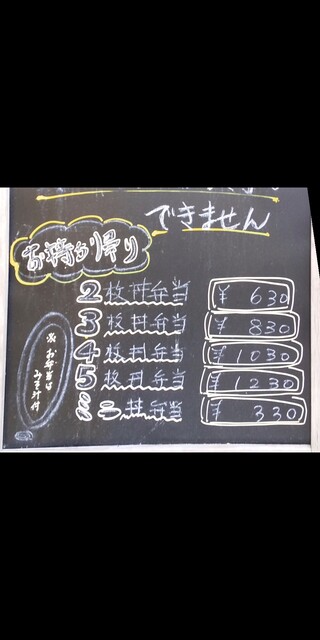 できません
お持ち帰り
2枚丼弁当 ¥630
3枚丼弁当 ¥830
4枚丼弁当 ¥1030
5枚丼弁当 ¥1230
ミニ丼弁当 ¥330
※お弁当は
みそ汁付